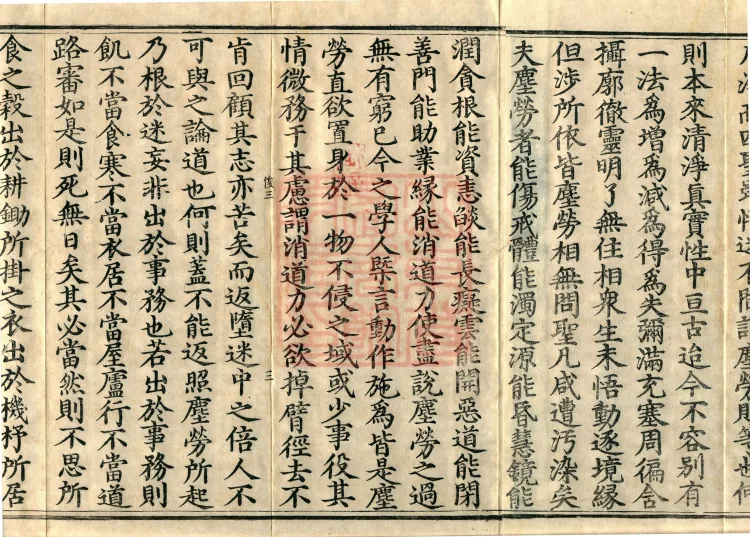 則本來清淨真實性中亘古迨今不容別有
一法為增為減為得為失彌滿充塞周徧含
攝廓徹靈明了無住相衆生未悟動逐境緣
但涉所依皆塵勞相無問聖凡咸遭汚染矣
夫塵勞者能傷戒體能濁定源能昏慧鏡能
潤貪根能資恚燄能長癡雲能開惡道能閉
善門能助業緣能消道力使盡說塵勞之過
無有窮已今之學人槩言動作施為皆是塵
勞直欲置身於一物不侵之域或少事役其
情微務干其慮謂消道力必欲掉臂徑去不
俊三
三
肯回顧其志亦苦矣而返墮迷中之倍人不
可與之論道也何則蓋不能返照塵勞所起
乃根於迷妄非出於事務也若出於事務則
飢不當食寒不當衣居不當屋廬行不當道
路審如是則死無日矣其必當然則不思所
食之穀出於耕鋤所掛之衣出於機杼所居